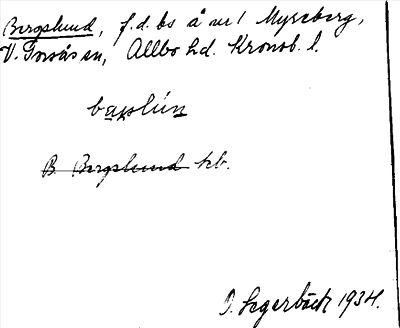 Bergslund, f.d. bs å nr 1 Myreberg,
V. Torsås sn, Allbo hd. Kronob. l.
B. Bergslund kb.
O. Segerbäck 1934.